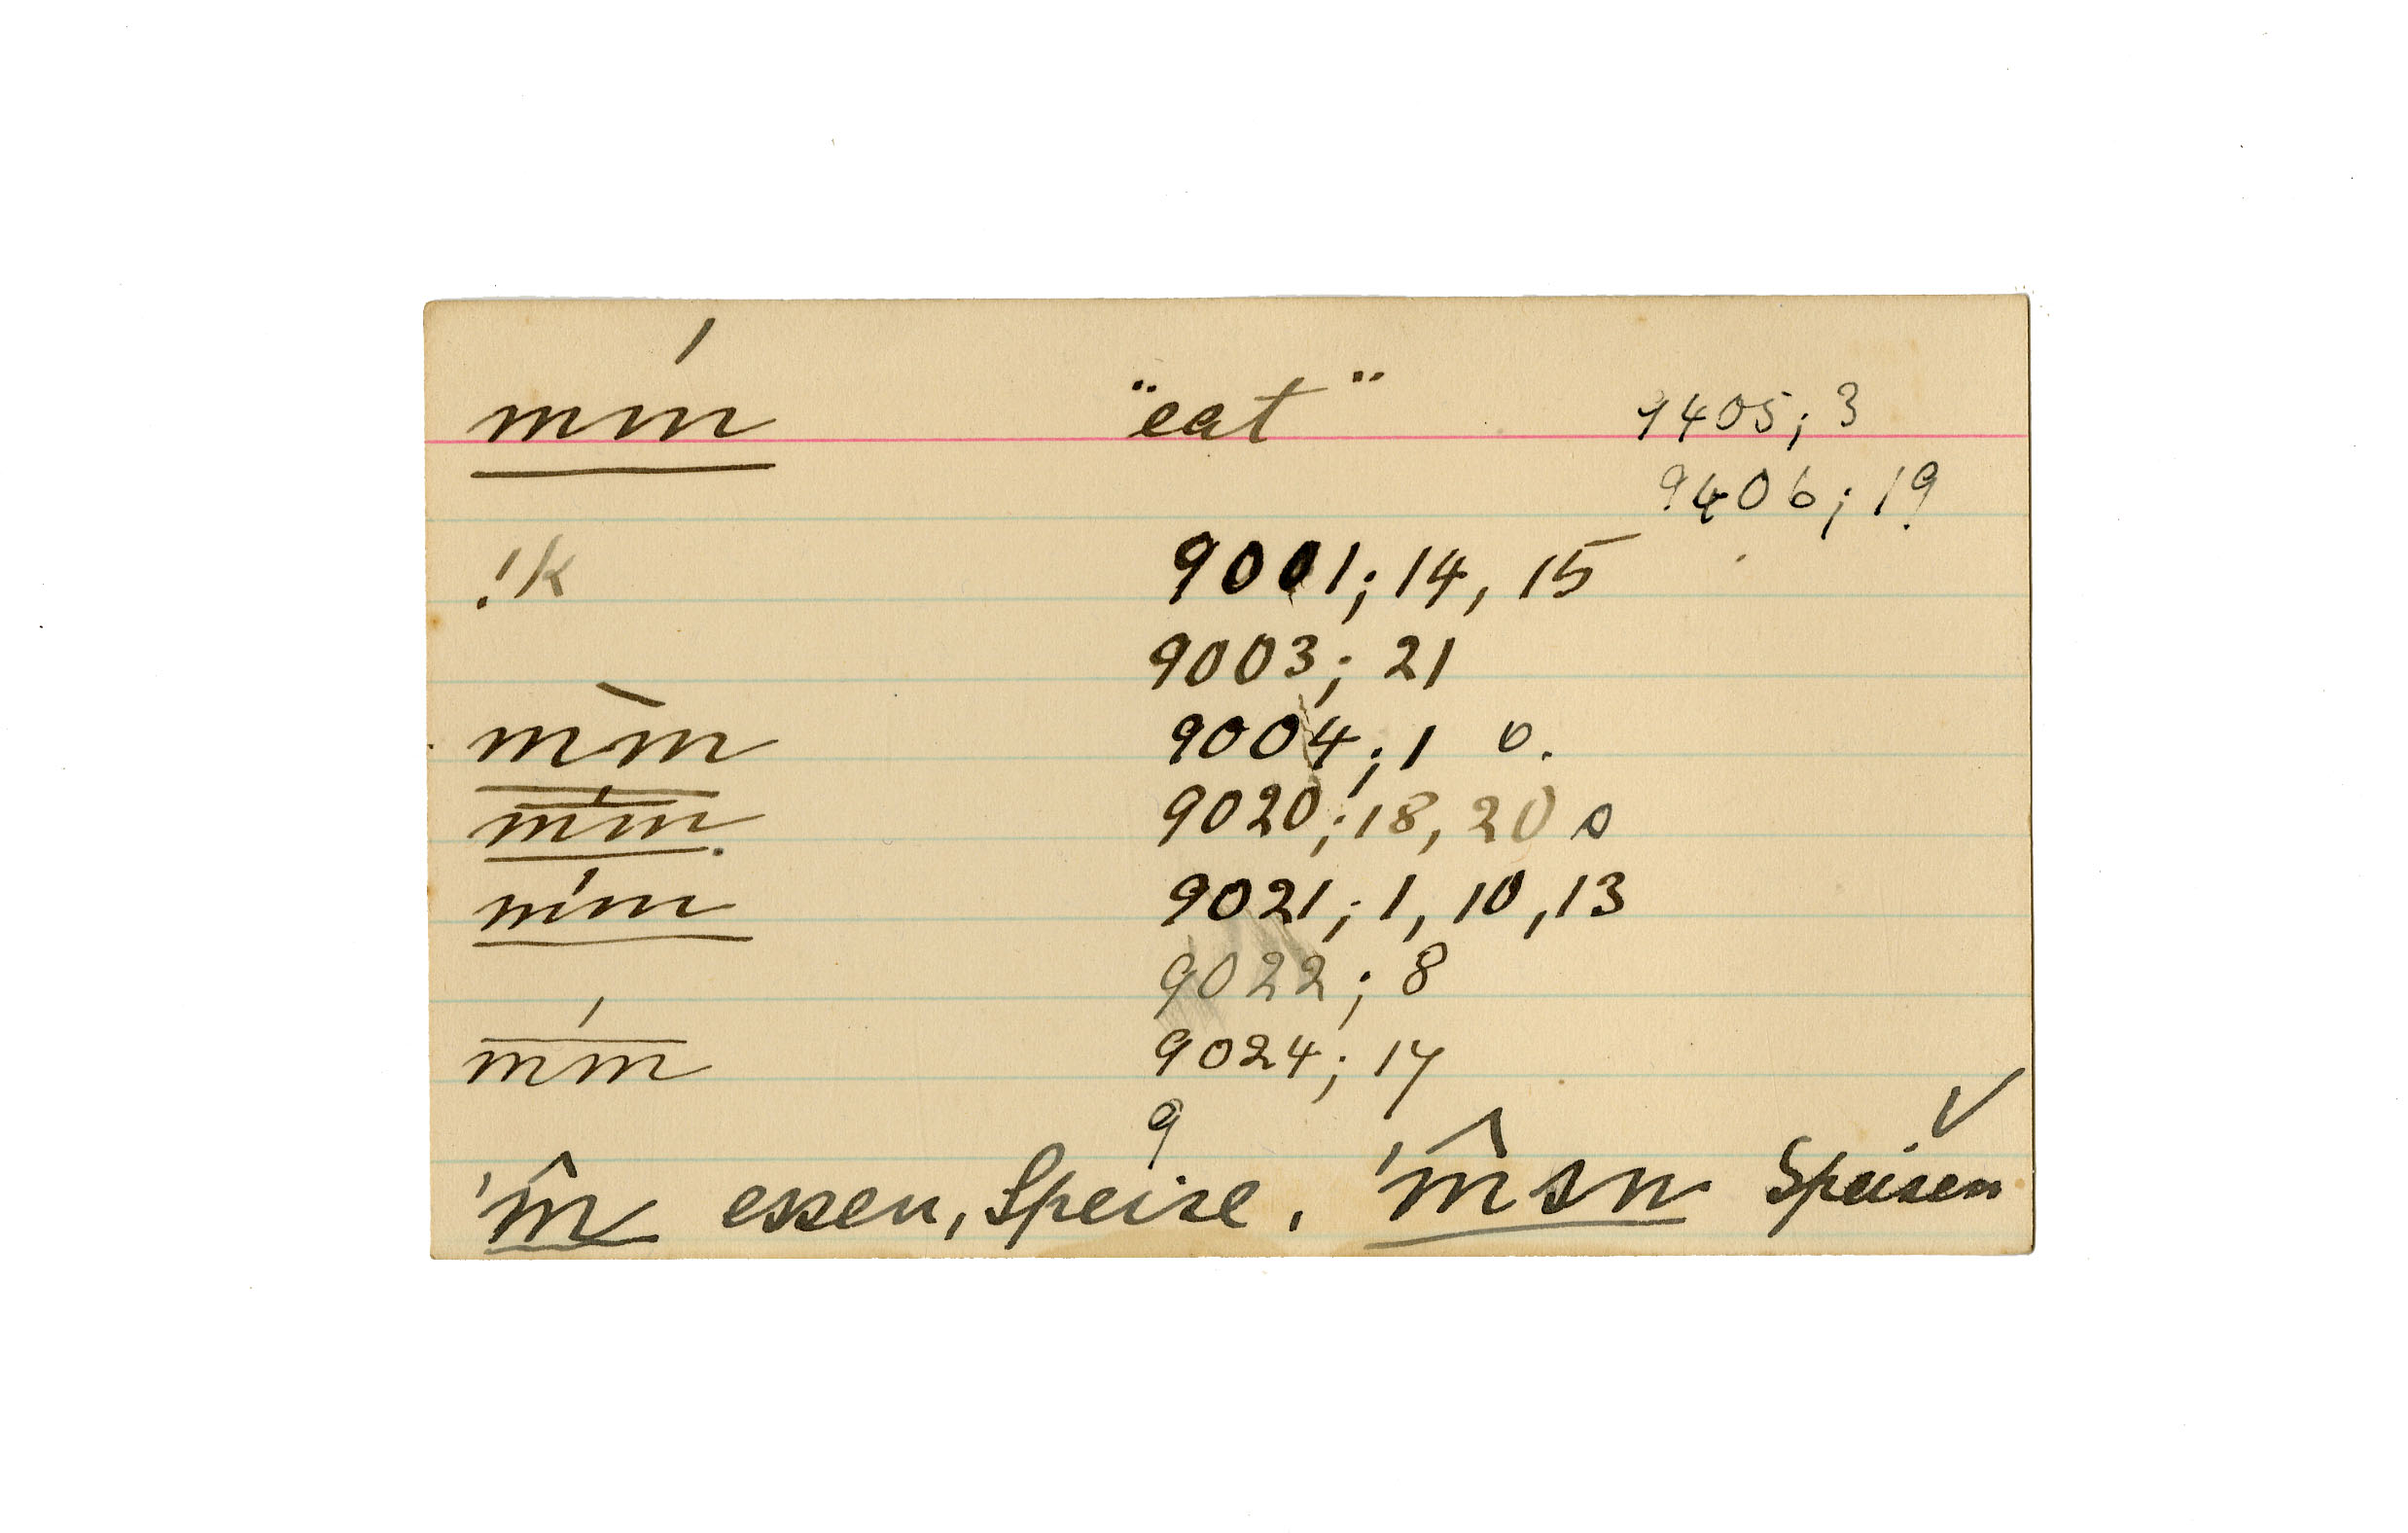 mḿ "eat" 9405; 3
9406; 19
!k 9001; 14, 15
9003; 21
mm̀ 9004; 1 o.
m'm 9020; 18, 20 o
m'm 9021; 1, 10, 13
9022; 8
m'm 9024; 17
9
'm̂ essen, Speise, 'm̂sn Speisen ✓